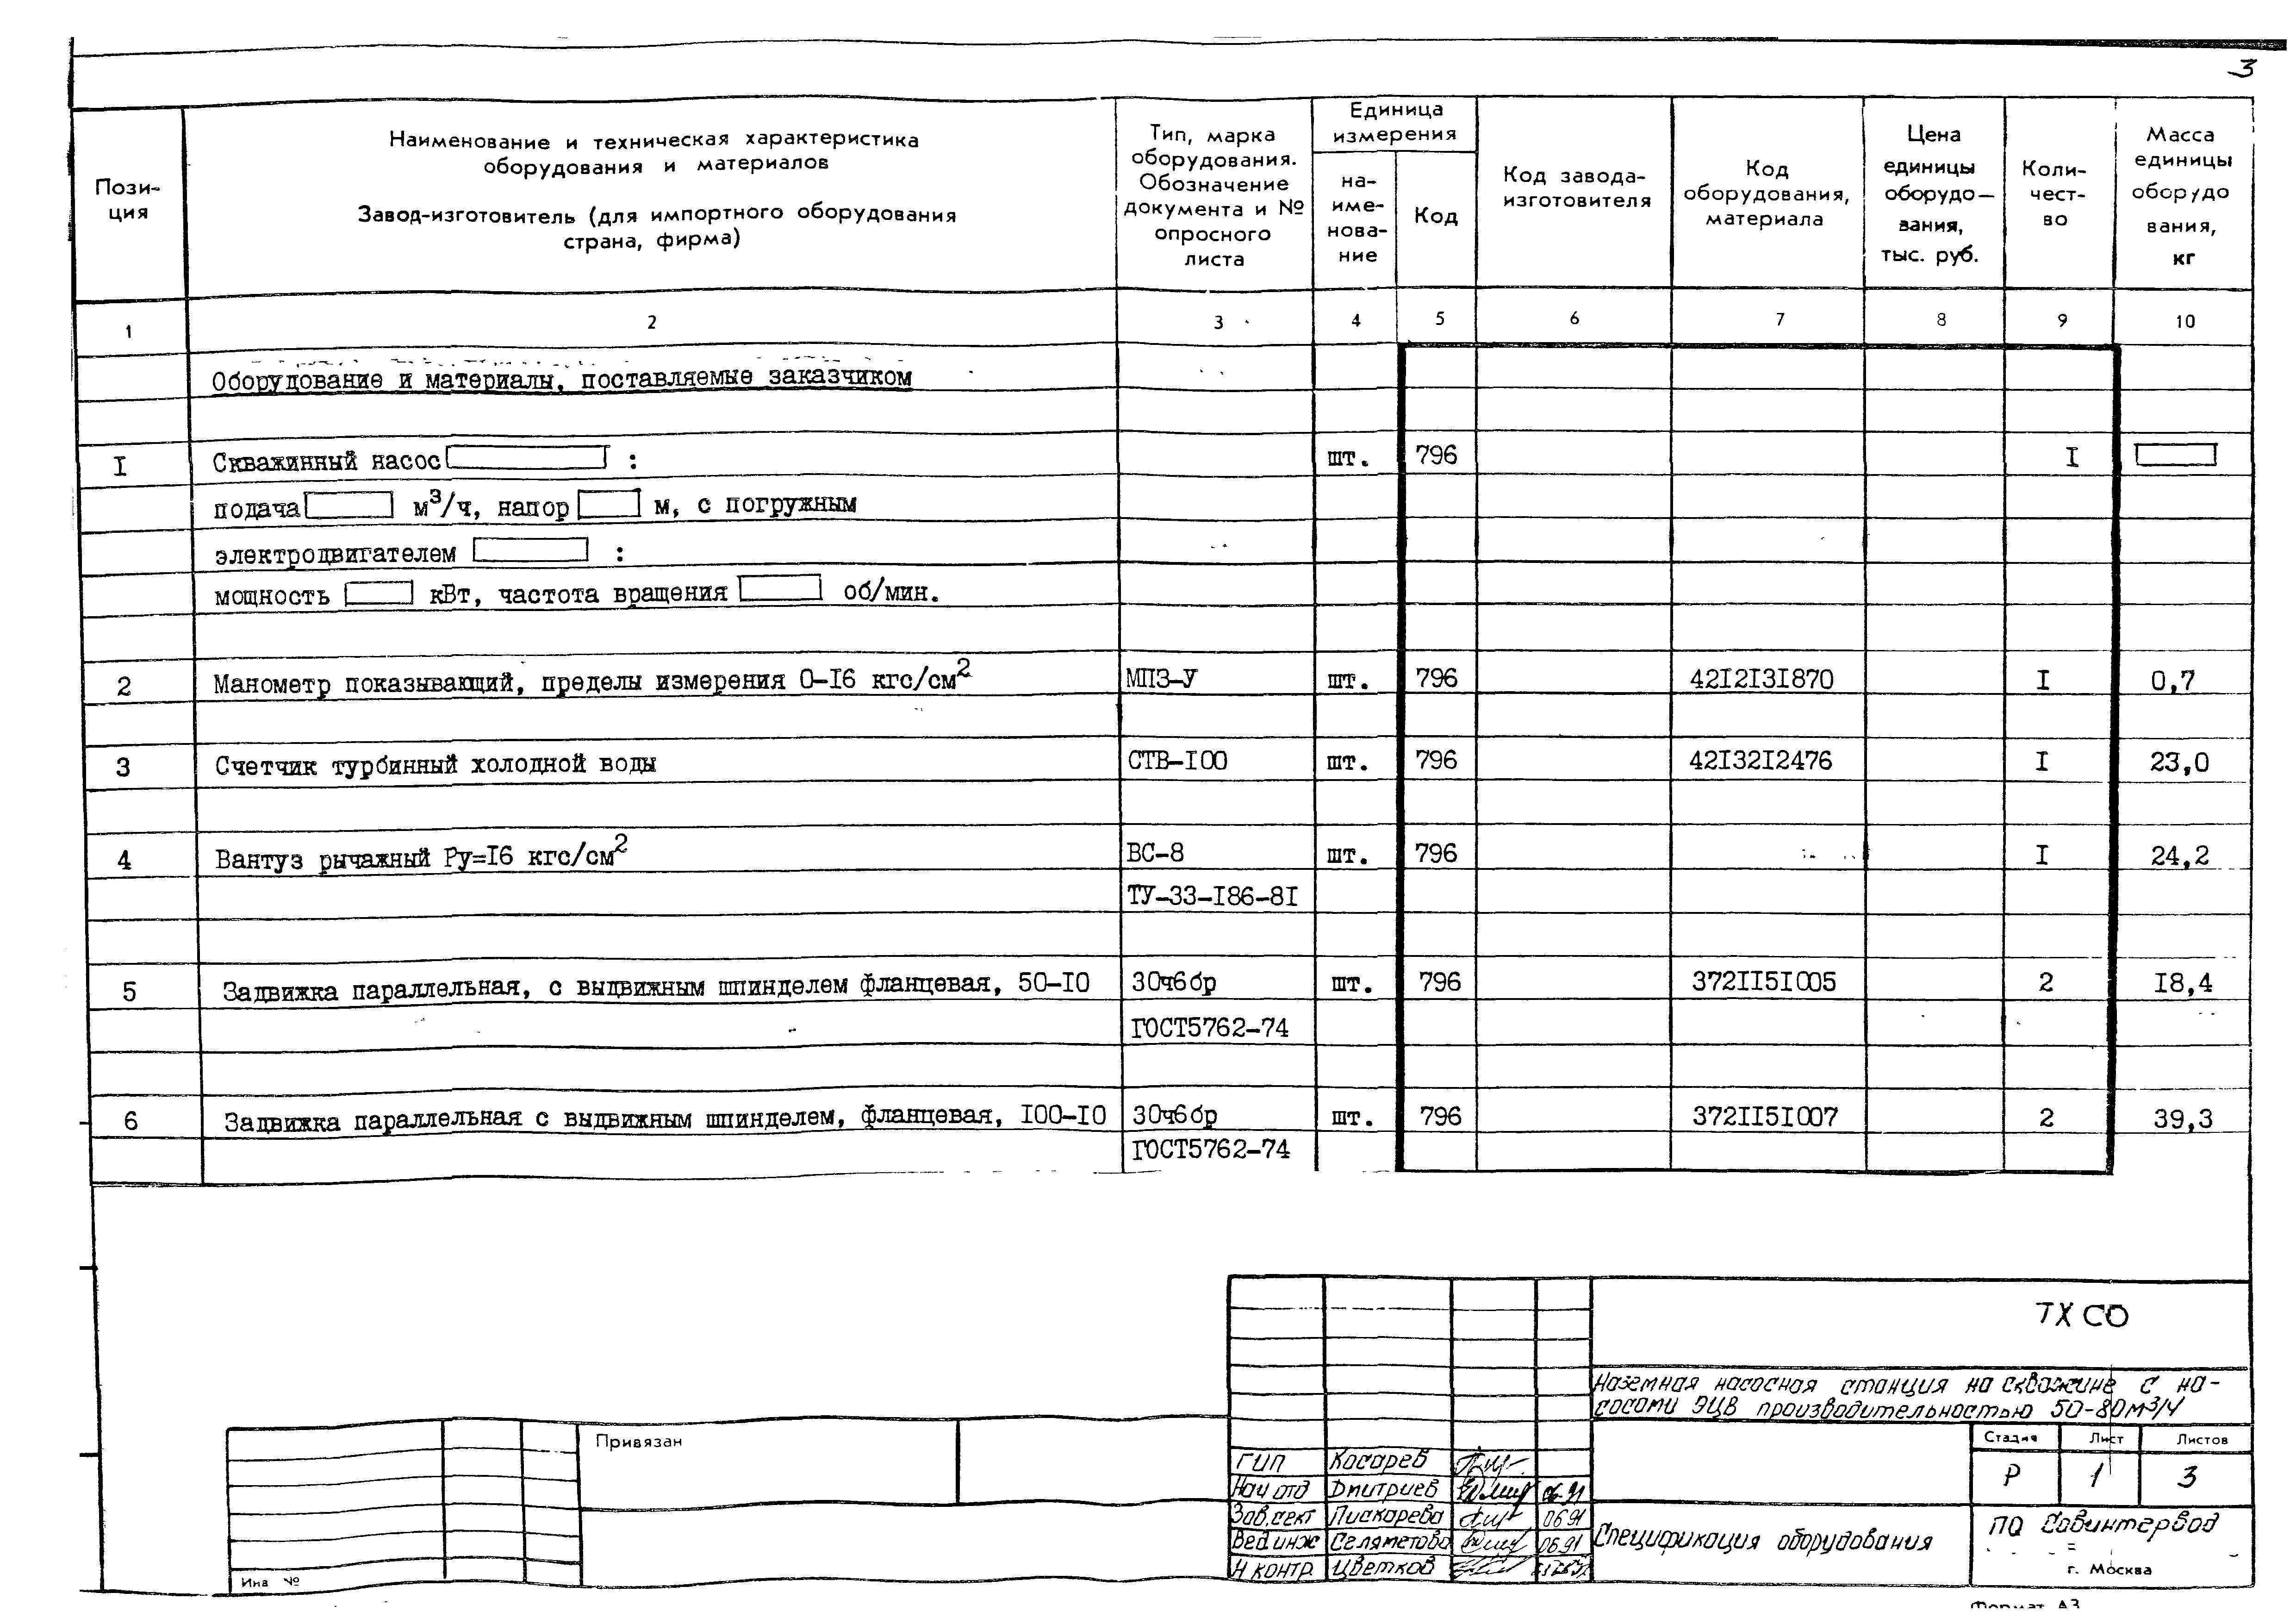 3
Пози-
ция
Наименование и техническая характеристика
оборудования и материалов
Завод-изготовитель (для импортного оборудования
страна, фирма)
Тип, марка
оборудования.
Обозначение
документа и №
опросного
листа
Единица
измерения
на-
име-
нова-
ние
Код
Код завода-
изготовителя
Код
оборудования,
материала
Цена
единицы
оборудо—
вания,
тыс. руб.
Коли-
чест-
во
Масса
единицы
оборудо
вания,
кг
1 2 3 4 5 6 7 8 9 10
Оборудование и материалы, поставляемые заказчиком
I Скважинный насос : шт. 796 I
подача м³/ч, напор м, с погружным
электродвигателем :
мощность кВт, частота вращения об/мин.
2 Манометр показывающий, пределы измерения 0-I6 кгс/см² МПЗ-У шт. 796 42I2I3I870 I 0,7
3 Счетчик турбинный холодной воды СТВ-I00 шт. 796 42I32I2476 I 23,0
4 Вантуз рычажный Ру=I6 кгс/см² ВС-8 шт. 796 I 24,2
ТУ-33-I86-8I
5 Задвижка параллельная, с выдвижным шпинделем фланцевая, 50-I0 30ч6бр шт. 796 372II5I005 2 I8,4
ГОСТ5762-74
6 Задвижка параллельная с выдвижным шпинделем, фланцевая, I00-I0 30ч6бр шт. 796 372II5I007 2 39,3
ГОСТ5762-74
ТХ СО
Наземная насосная станция на скважине с на-
сосами ЭЦВ производительностью 50-80м³/ч
Привязан
Стадия Лист Листов
Р 1 3
ГИП Косарев
Нач отд Дмитриев 06.91
Зав.сект Пискарева 06 91
Вед инж Селяметова 06.91
Н контр Цветков
Спецификация оборудования
ПО Совинтервод
г. Москва
Инв №
Формат А3